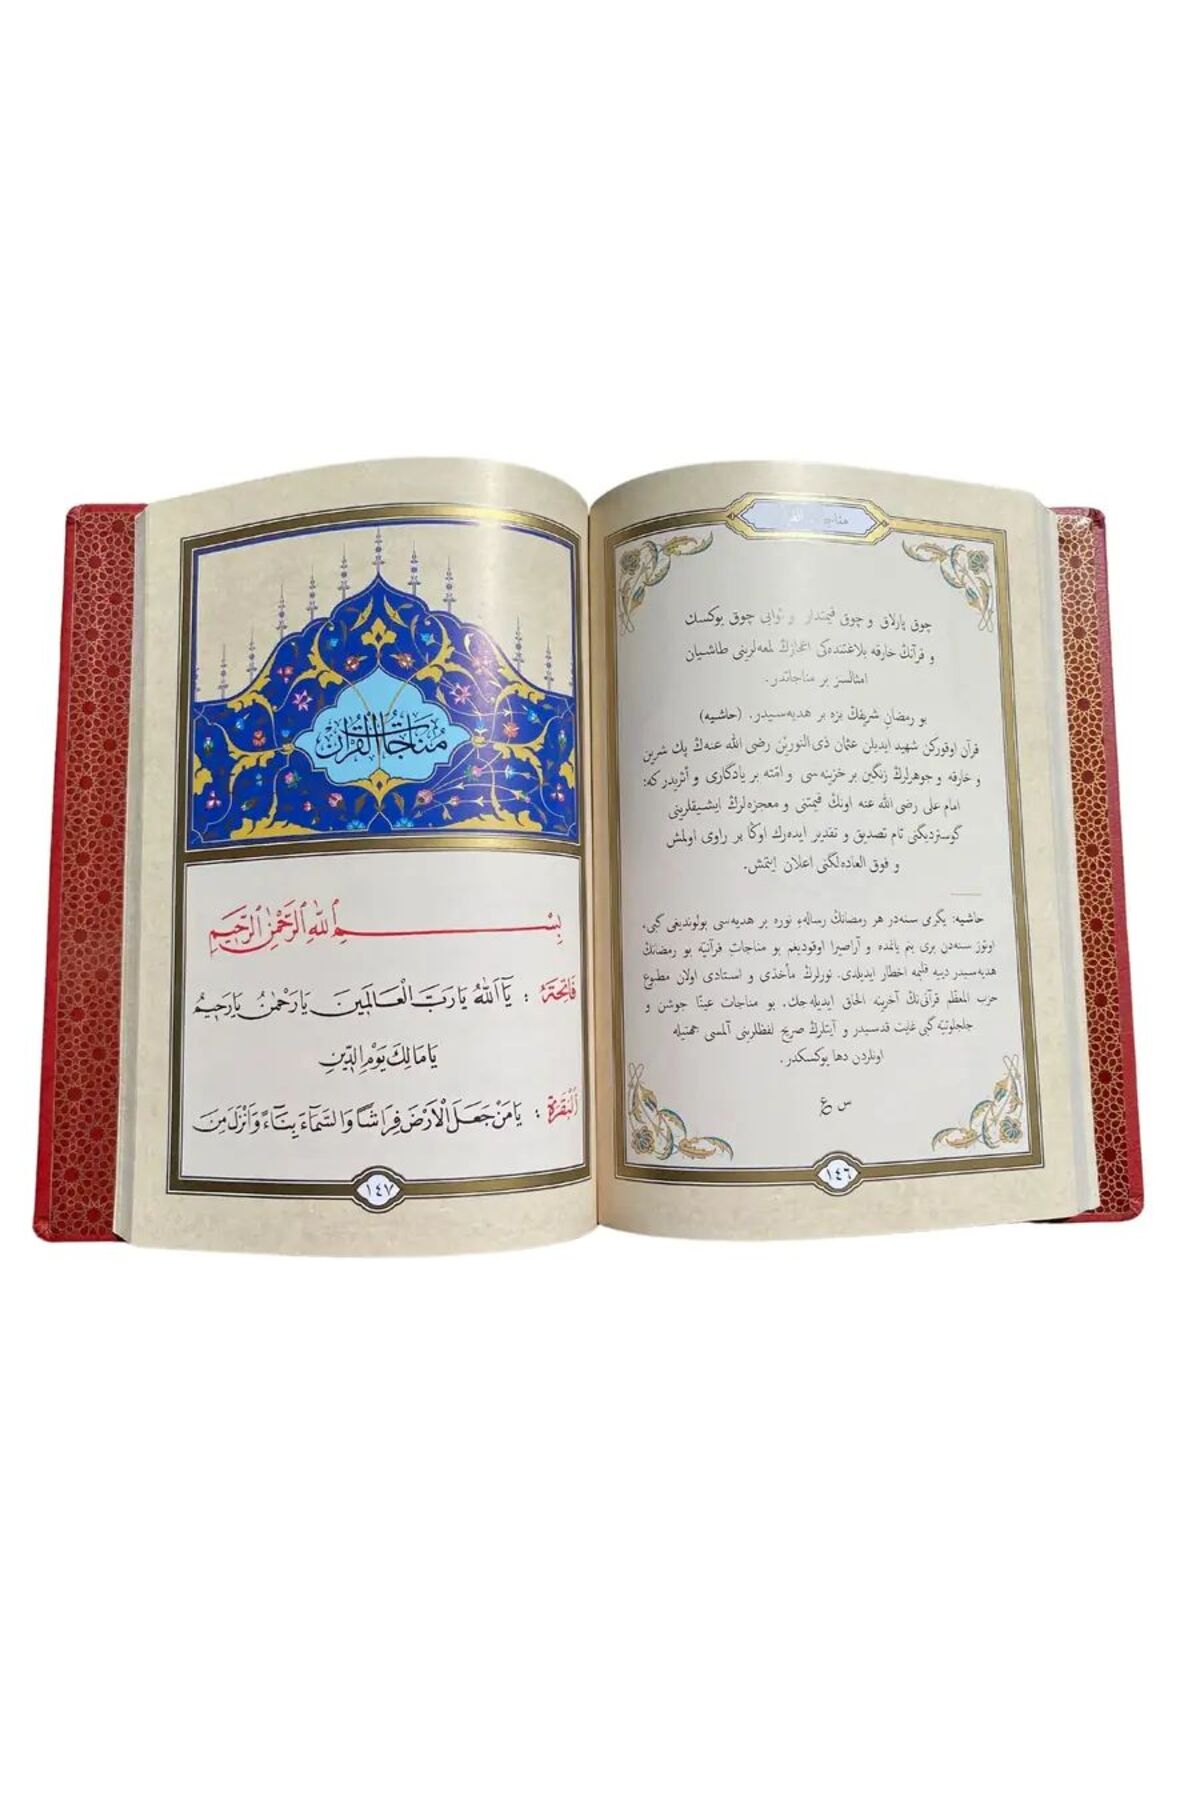 چوق پارلاق و چوق قیمتدار و ثوابی چوق یوكسك
و قرآنڭ خارقه بلاغتنده‌كی اعجازڭ لمعه‌لرینی طاشییان
امثالسز بر مناجاتدر.
بو رمضان شریفڭ بزه بر هدیه‌سیدر. (حاشیه)
قرآن اوقوركن شهید ایدیلن عثمان ذی النورین رضی الله عنه‌ڭ پك شیرین
و خارقه و جوهرلرڭ زنگین بر خزینه‌سی و امّته بر یادگاری و أثریدر كه:
امام علی رضی الله عنه اونڭ قیمتنی و معجزه‌لرڭ ایشیقلرینی
گوستردیگنی تام تصدیق و تقدیر ایده‌رك اوڭا بر راوی اولمش
و فوق العاده‌لگنی اعلان ایتمش.
حاشیه: یگرمی سنه‌در هر رمضانڭ رسالهٔ نوره بر هدیه‌سی بولوندیغی گبی،
اوتوز سنه‌دن بری بنم یانمده و آراصیرا اوقودیغم بو مناجات قرآنیّه بو رمضانڭ
هدیه‌سیدر دییه قلبمه اخطار ایدیلدی. نورلرڭ مأخذی و استادی اولان مطبوع
حزب المعظّم قرآنی‌نڭ آخرینه الحاق ایدیله‌جك. بو مناجات عینًا جوشن و
جلجلوتیّه گبی غایت قدسیدر و آیتلرڭ صریح لفظلرینی آلمسی جهتیله
اونلردن دها یوكسكدر.
س ع
١٤٦
مُنَاجَاتُ الْقُرْآنِ
بِسْمِ ٱللّٰهِ ٱلرَّحْمٰنِ ٱلرَّحِيمِ
فَاتِحَة : يَا اَللّٰهُ يَا رَبَّ الْعَالَمِينَ يَا رَحْمٰنُ يَا رَحِيمُ
يَا مَالِكَ يَوْمِ الدِّينِ
اَلْبَقَرَة : يَا مَنْ جَعَلَ الْاَرْضَ فِرَاشًا وَالسَّمَآءَ بِنَآءً وَاَنْزَلَ مِنَ
١٤٧